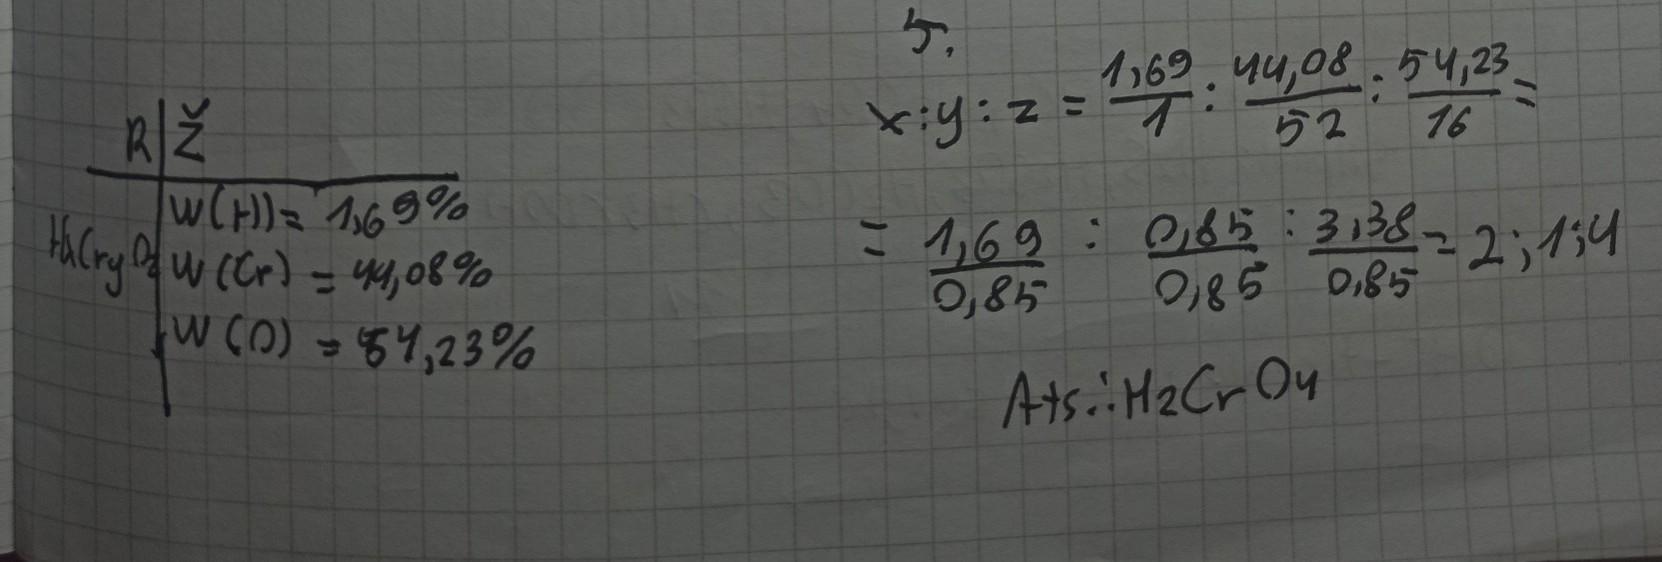 5.
x:y:z = 1,69/1 : 44,08/52 : 54,23/16 =
= 1,69/0,85 : 0,85/0,85 : 3,38/0,85 = 2;1;4
Ats.: H2CrO4
R | Ž
HxCryOz
W(H) = 1,69%
W(Cr) = 44,08%
W(O) = 54,23%